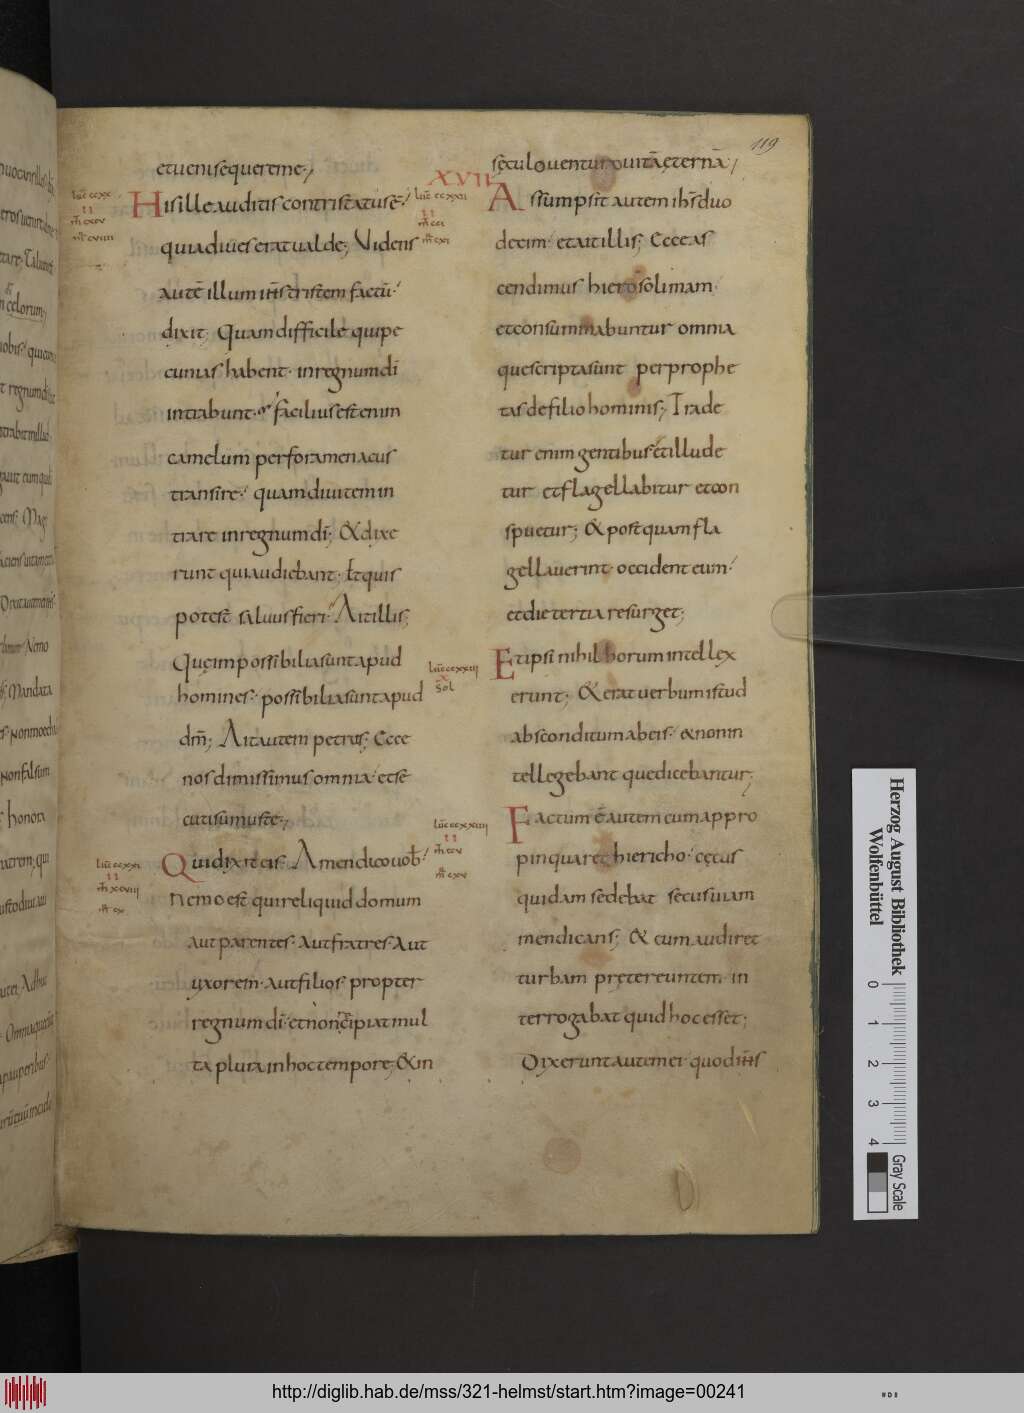 119
et ueni sequere me;
Luc ccxx
II
mt cxcv
mr cviiii
His ille auditis contristatus ē;
quia diues erat ualde; Videns
autē illum ihs tristem factū
dixit; Quam difficile qui pe
cunias habent in regnum di
intrabunt; facilius est enim
camelum per foramen acus
transire quam diuitem in
trare in regnum di; & dixe
runt qui audiebant; Et quis
potest saluus fieri; Ait illis;
Quę impossibilia sunt apud
homines; possibilia sunt apud
dm; Ait autem petrus; Ecce
nos dimissimus omnia et se
cuti sumus te;
Luc ccxxi
II
mt xcviiii
mr cx
Qui dixit eis; Amen dico uob
nemo est qui reliquid domum
aut parentes aut fratres aut
uxorem aut filios propter
regnum di et non recipiat mul
ta plura in hoc tempore; & in
sęculo uenturo uitā ęternā;
XVII
Luc ccxxii
II
mt cci
mr cxi
Assumpsit autem ihs duo
decim et ait illis; Ecce as
cendimus hierosolimam
et consummabuntur omnia
que scripta sunt per prophe
tas de filio hominis; Trade
tur enim gentibus et illude
tur et flagellabitur et con
spuetur; & postquam fla
gellauerint occident eum
et die tertia resurget;
Luc ccxxiii
x
Sol
Et ipsi nihil horum intellex
erunt; & erat uerbum istud
absconditum ab eis & non in
tellegebant que dicebantur;
Luc ccxxiiii
II
mt ccv
mr cxv
Factum ē autem cum appro
pinquaret hiericho cęcus
quidam sedebat secus uiam
mendicans; & cum audiret
turbam prętereuntem in
terrogabat quid hoc esset;
Dixerunt autem ei quod ihs
Herzog August Bibliothek
Wolfenbüttel
0 1 2 3 4
Gray Scale
http://diglib.hab.de/mss/321-helmst/start.htm?image=00241